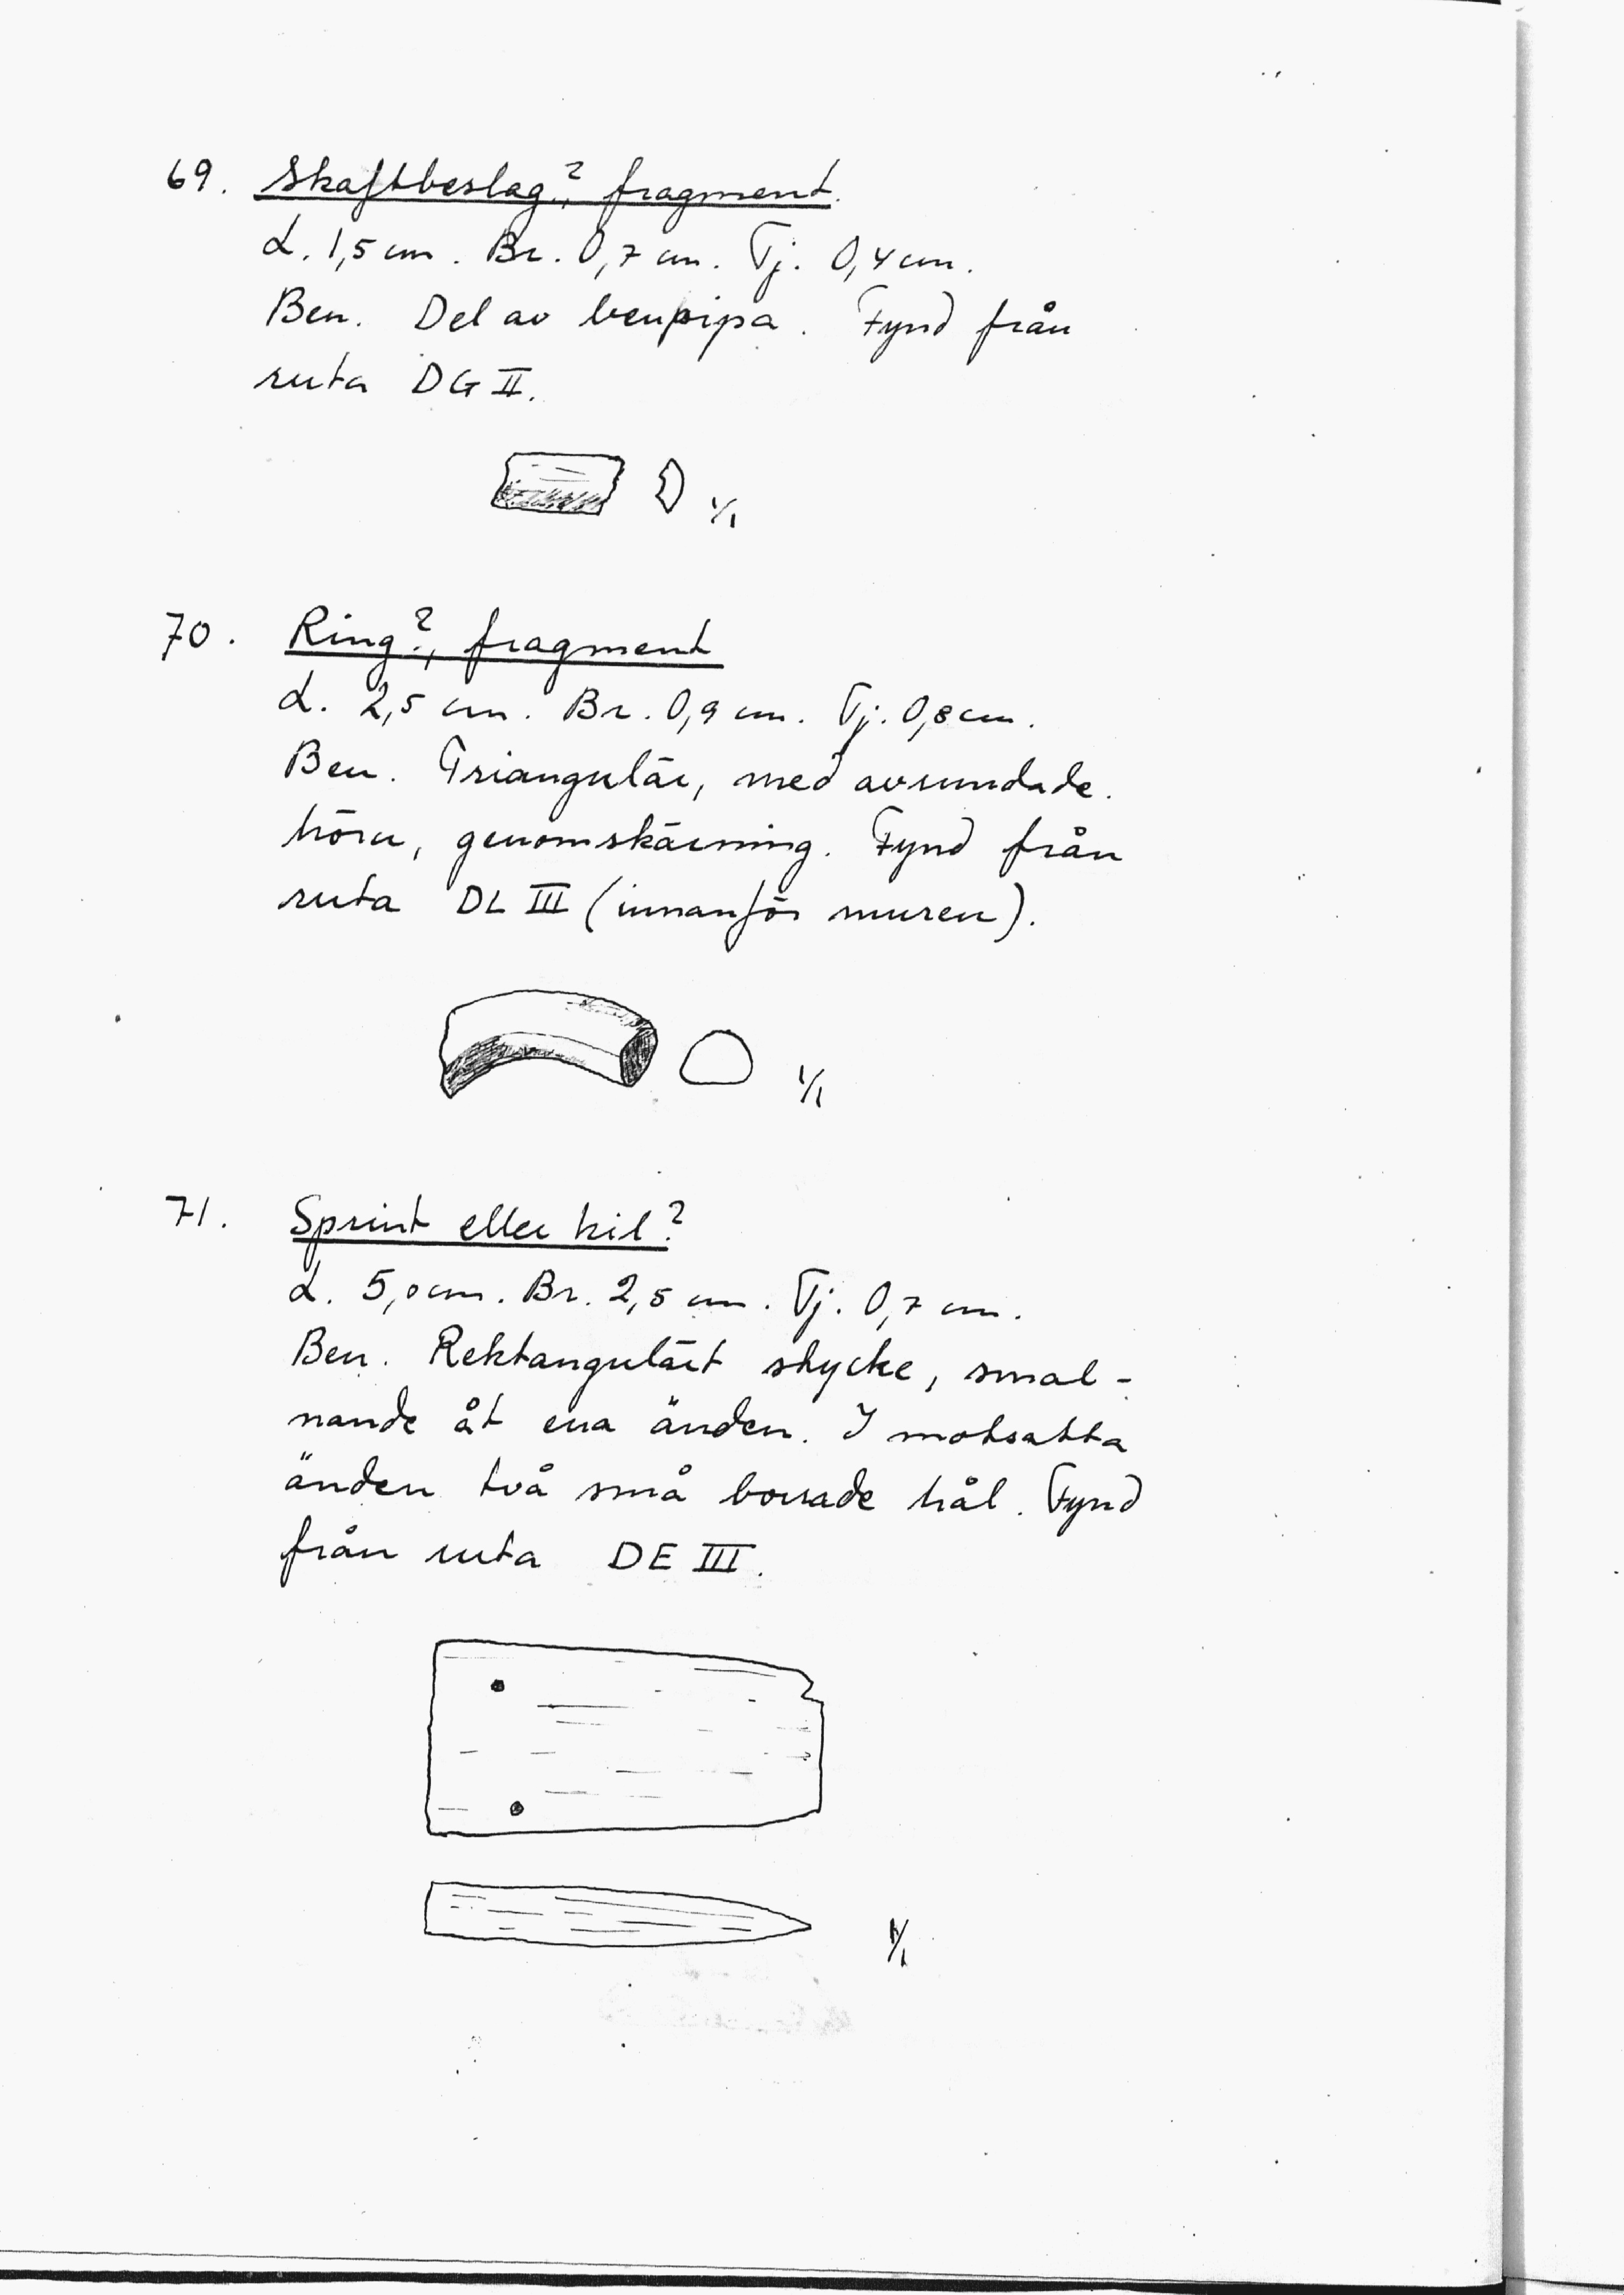 69. Skaftbeslag?, fragment.
L. 1,5 cm. Br. 0,7 cm. Tj. 0,4 cm.
Ben. Del av benpipa. Fynd från
ruta DG II.
1/1
70. Ring?, fragment
L. 2,5 cm. Br. 0,9 cm. Tj. 0,8 cm.
Ben. Triangulär, med avrundade
hörn, genomskärning. Fynd från
ruta DL III (innanför muren).
1/1
71. Sprint eller kil?
L. 5,0 cm. Br. 2,5 cm. Tj. 0,7 cm.
Ben. Rektangulärt stycke, smal-
nande åt ena änden. I motsatta
änden två små borrade hål. Fynd
från ruta DE III.
1/1